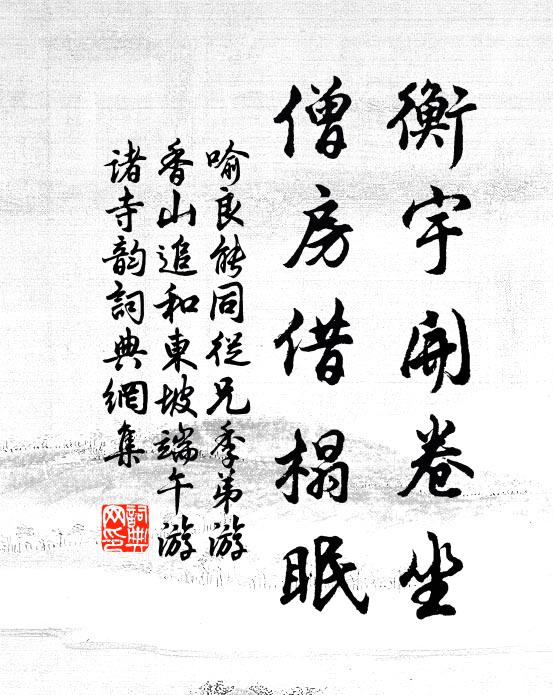 衡宇開卷坐
僧房借榻眠
喻良能同從兄季弟游
香山追和東坡端午游
诸寺韵詞典網集
詞典网印